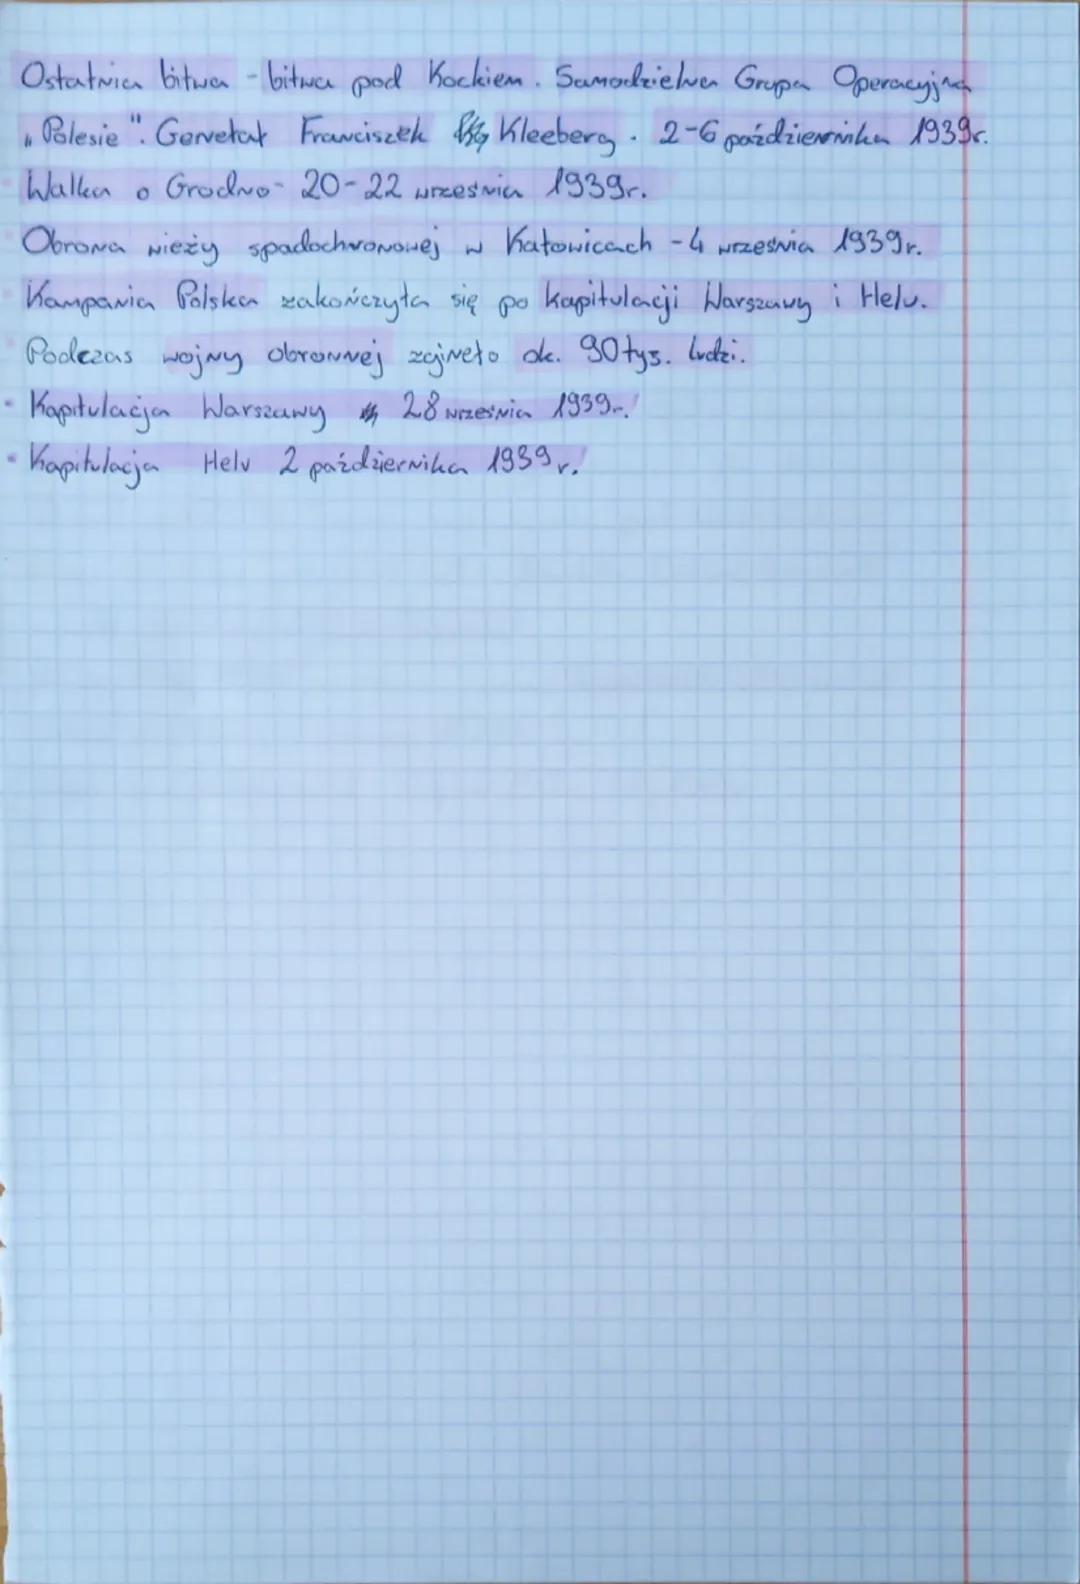 Ostatnia bitwa - bitwa pod Kockiem. Samodzielna Grupa Operacyjna
„Polesie". Generał Franciszek Kleeberg. 2-6 października 1939r.
Walka o Grodno - 20-22 września 1939r.
Obrona wieży spadochronowej w Katowicach - 4 września 1939r.
Kampania Polska zakończyła się po kapitulacji Warszawy i Helu.
Podczas wojny obronnej zgineło ok. 90 tys. ludzi.
• Kapitulacja Warszawy 28 września 1939r.
• Kapitulacja Helu 2 października 1939r.